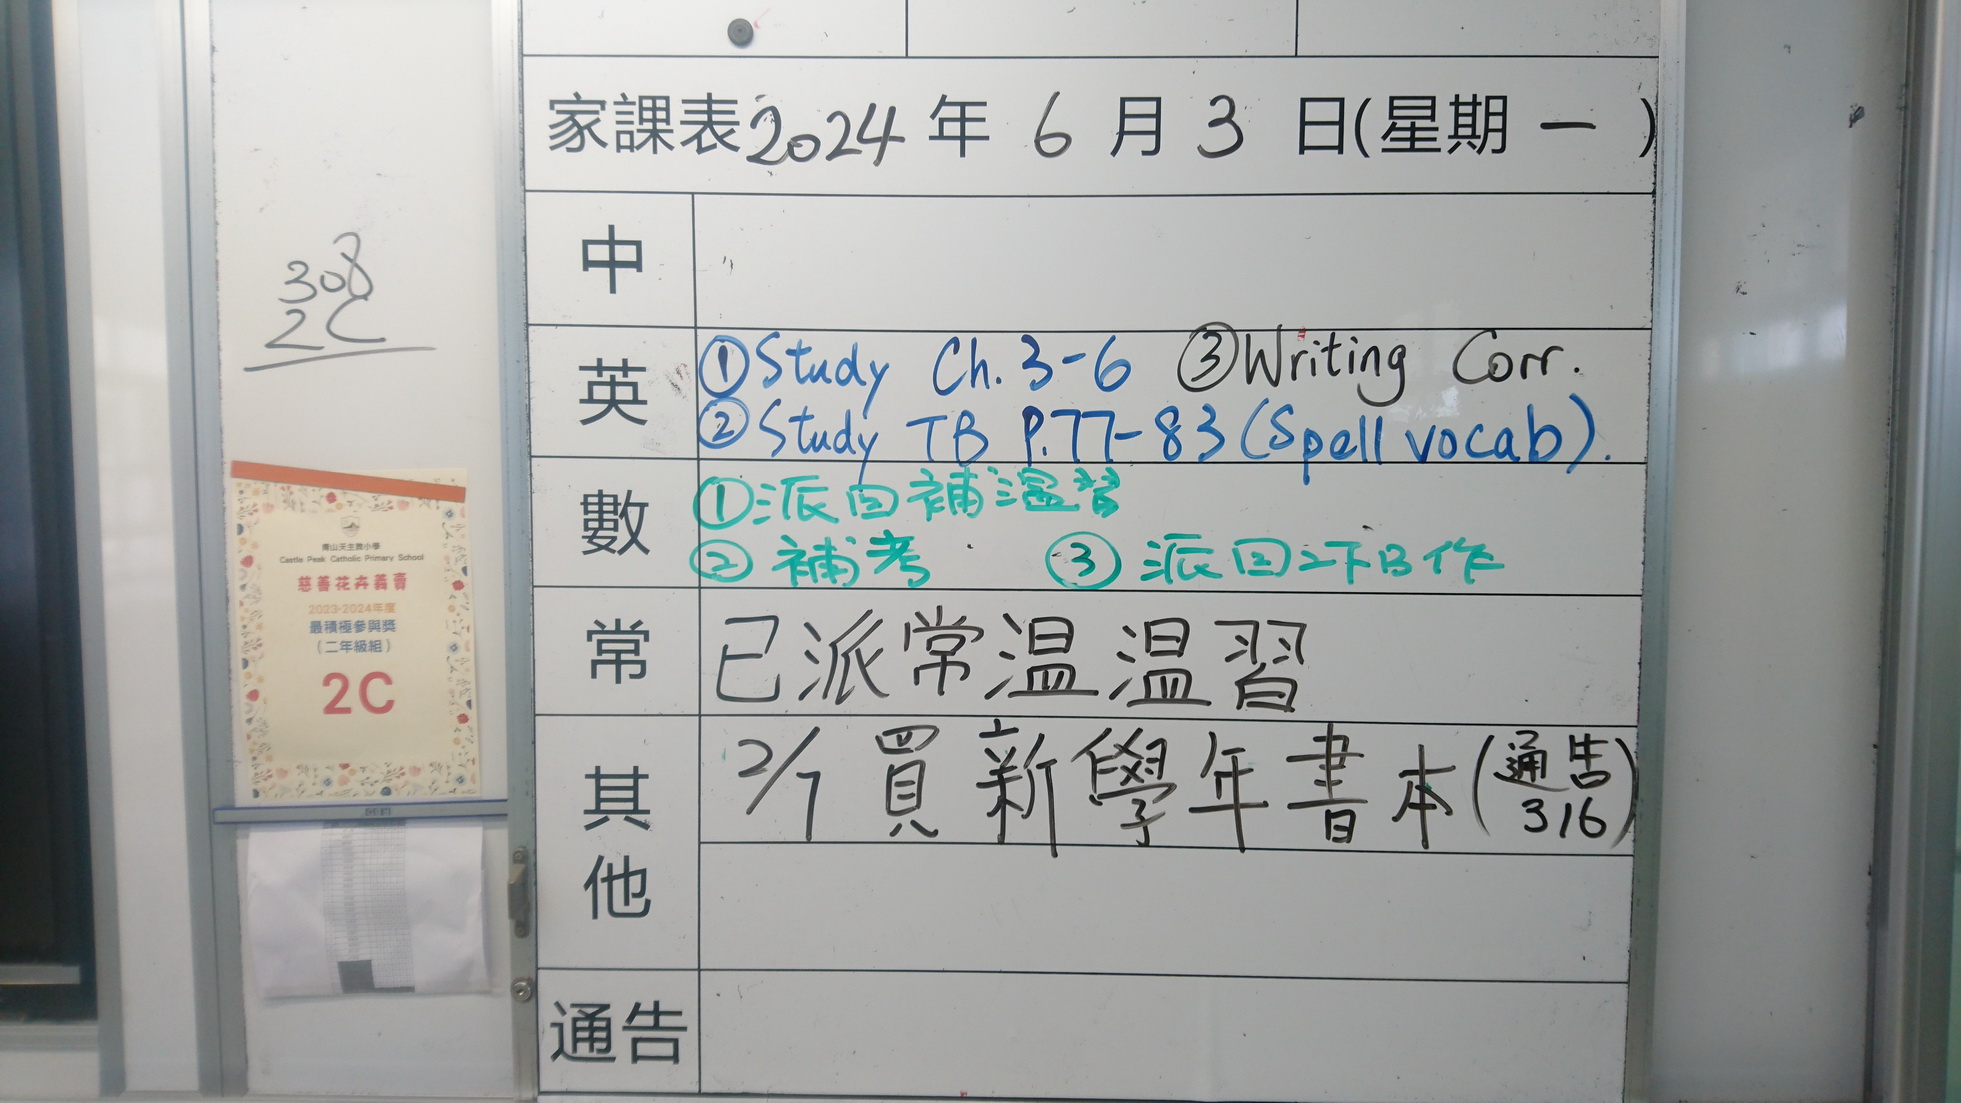 家課表2024年 6月3日(星期一)
中
英
①Study Ch.3-6 ③Writing Corr.
②Study TB P.77-83(Spell vocab).
數
①派回補溫習
②補考 ③派回2下B作
常
已派常温温習
其他
2/7買新學年書本(通告316)
通告
308
2C
青山天主教小學
Castle Peak Catholic Primary School
慈善花卉義賣
2023-2024年度
最積極參與獎
(二年級組)
2C